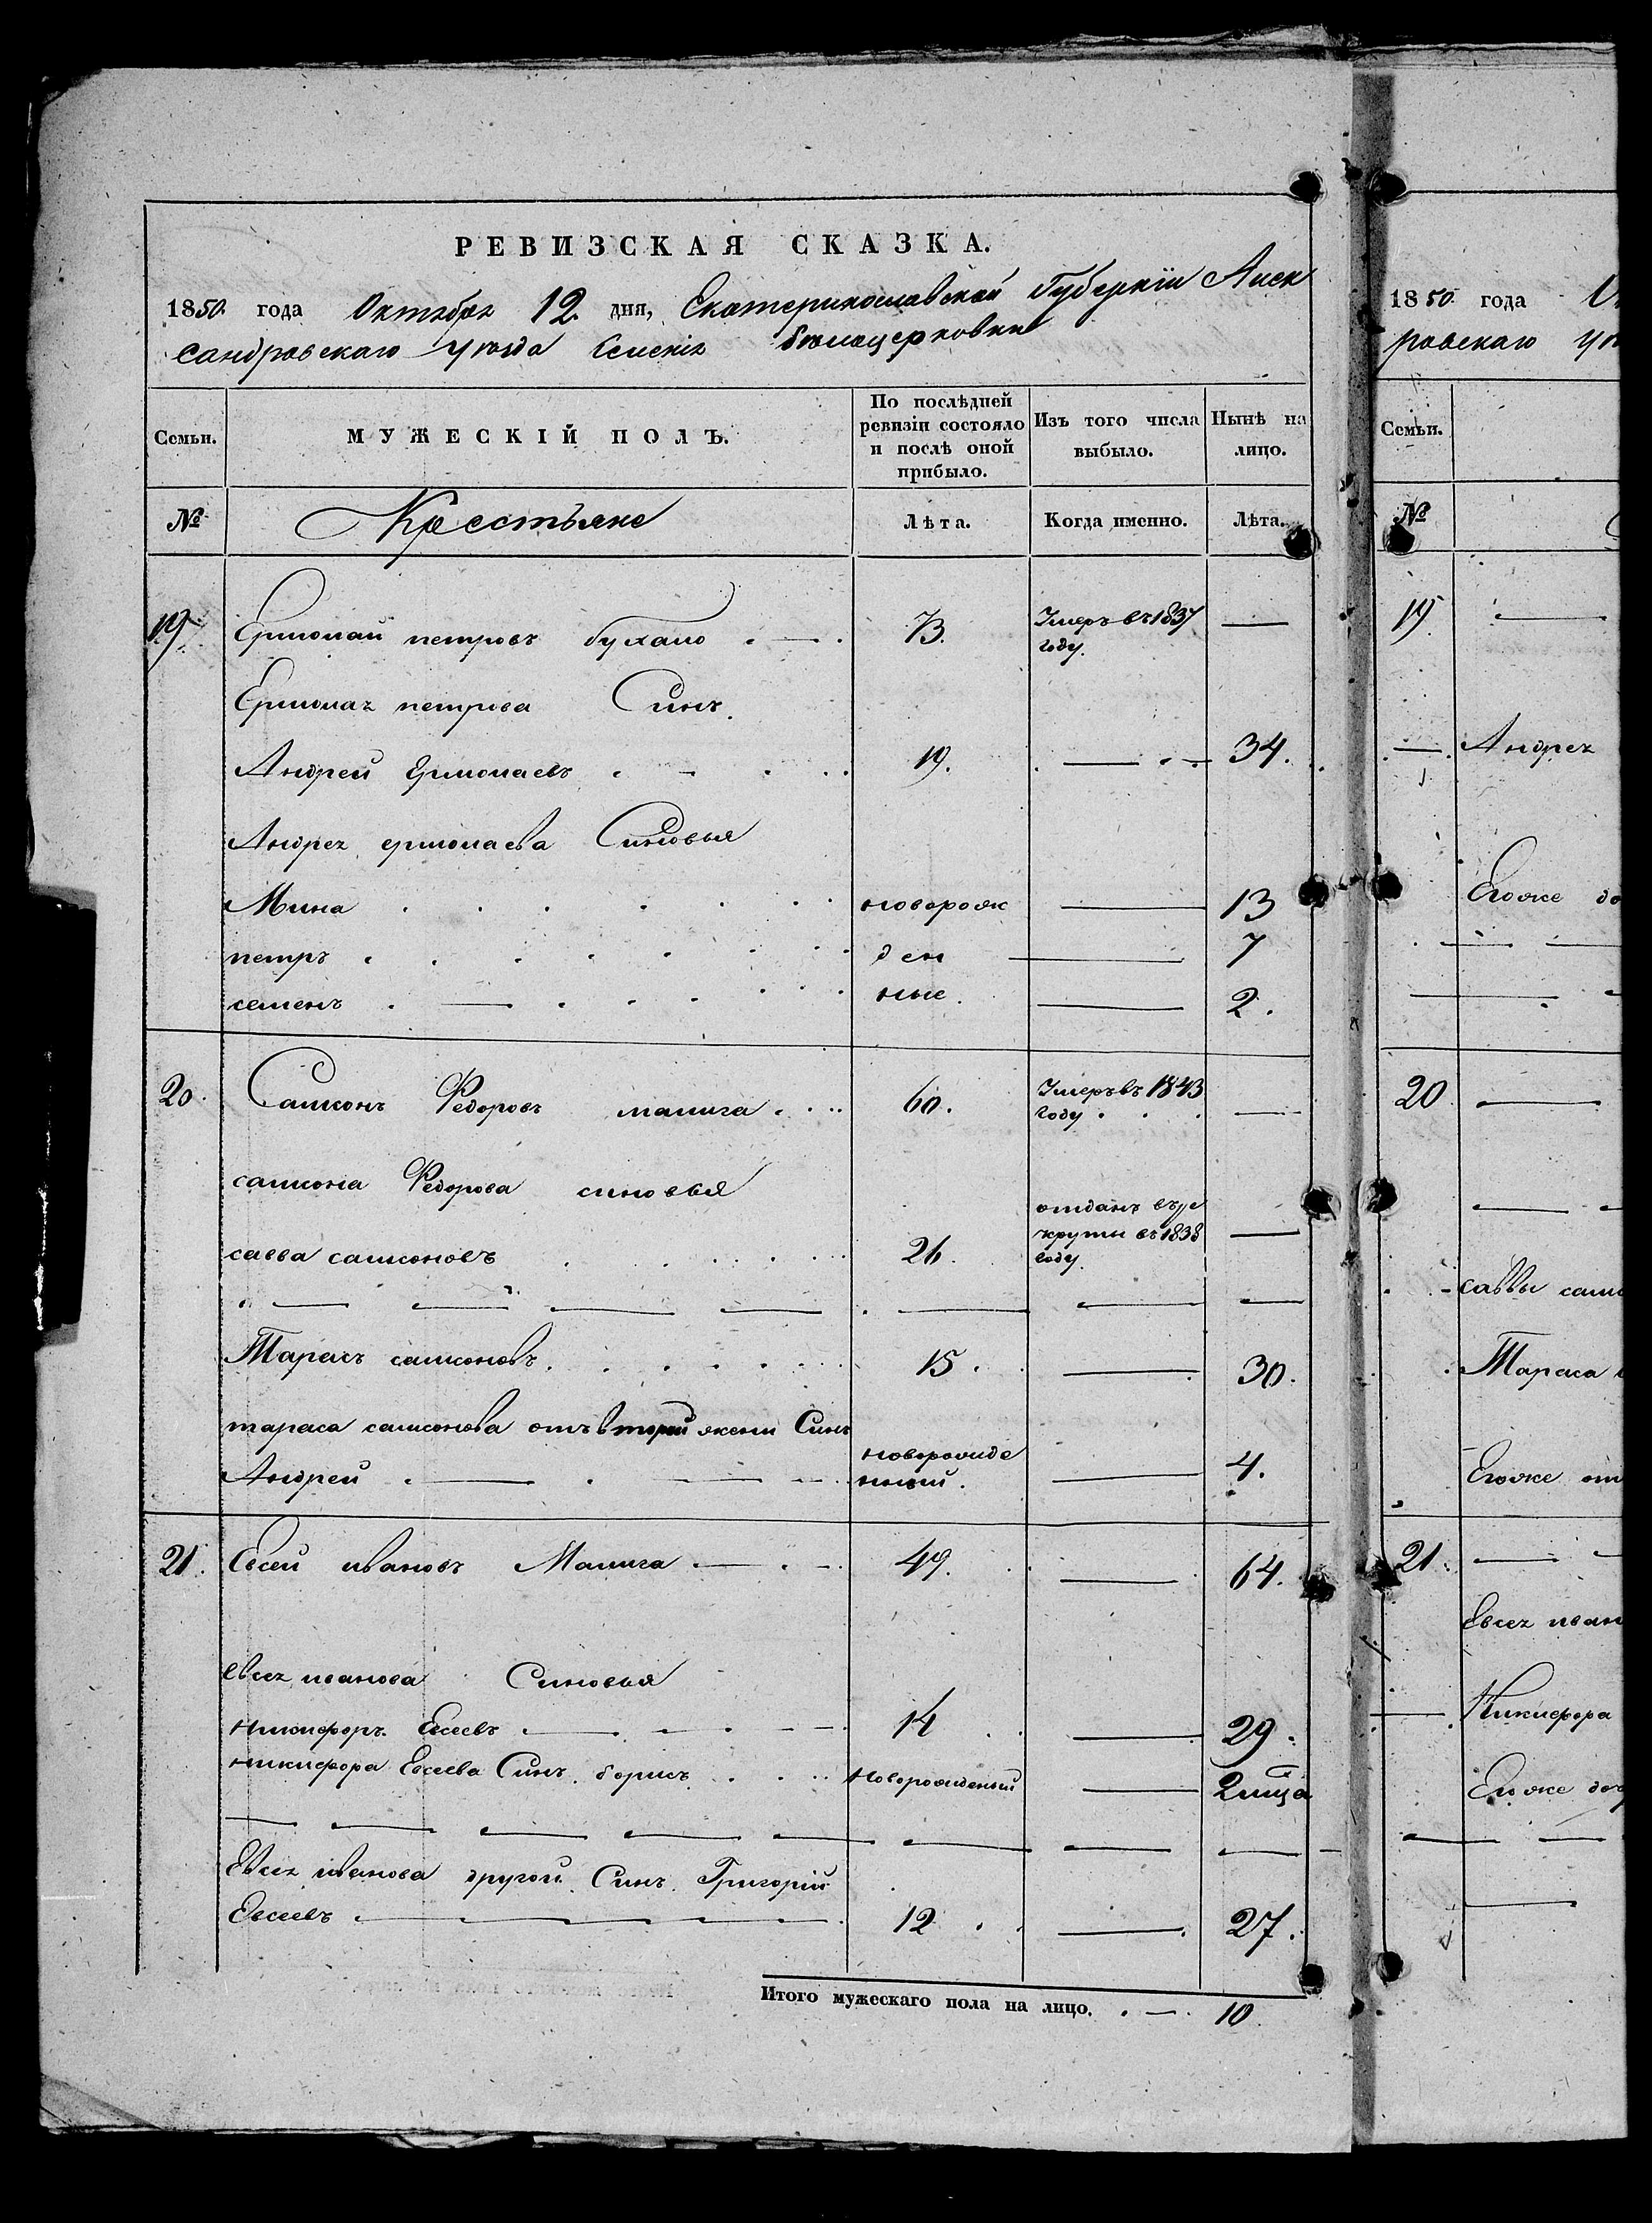 РЕВИЗСКАЯ СКАЗКА.
1850 года Октября 12 дня, Екатеринославской Губерніи Алек
сандровскаго уѣзда Селенія бѣлоцерковки
Семьи.
МУЖЕСКІЙ ПОЛЪ.
По послѣдней ревизіи состояло и послѣ оной прибыло.
Изъ того числа выбыло.
Нынѣ на лицо.
№
Крестьяне
Лѣта.
Когда именно.
Лѣта.
19 Ермолай петровъ бухало 73. Умеръ въ 1837 —
году.
Ермолая петрова Синъ
Андрей Ермолаевъ 19. — 34.
Андрея ермолаева Синовья
Мина новорож — 13
петръ ден — 7
семенъ ные. — 2.
20. Самсонъ Федоровъ малига 60. Умеръ въ 1843 —
году
самсона Федорова синовья
отданъ въ ре
савва самсоновъ 26. круты въ 1838 —
году.
Тарасъ самсоновъ. 15. — 30.
тараса самсонова отъ второй жены Синъ
новорожде
Андрей нный. — 4.
21. Евсей ивановъ Малига 49. — 64.
евсея иванова Синовья
никифоръ Евсеевъ 14 — 29.
никифора Евсеева Синъ борисъ Новорожденый — 2 мца
Евсея иванова другой Синъ Григорій
Евсеевъ 12 — 27.
Итого мужескаго пола на лицо. 10
1850 года
ровскаго
Семьи.
№
19
Андрея
Егоже
20
саввы
Тараса
Егоже
21
Евсея
Никифора
Егоже